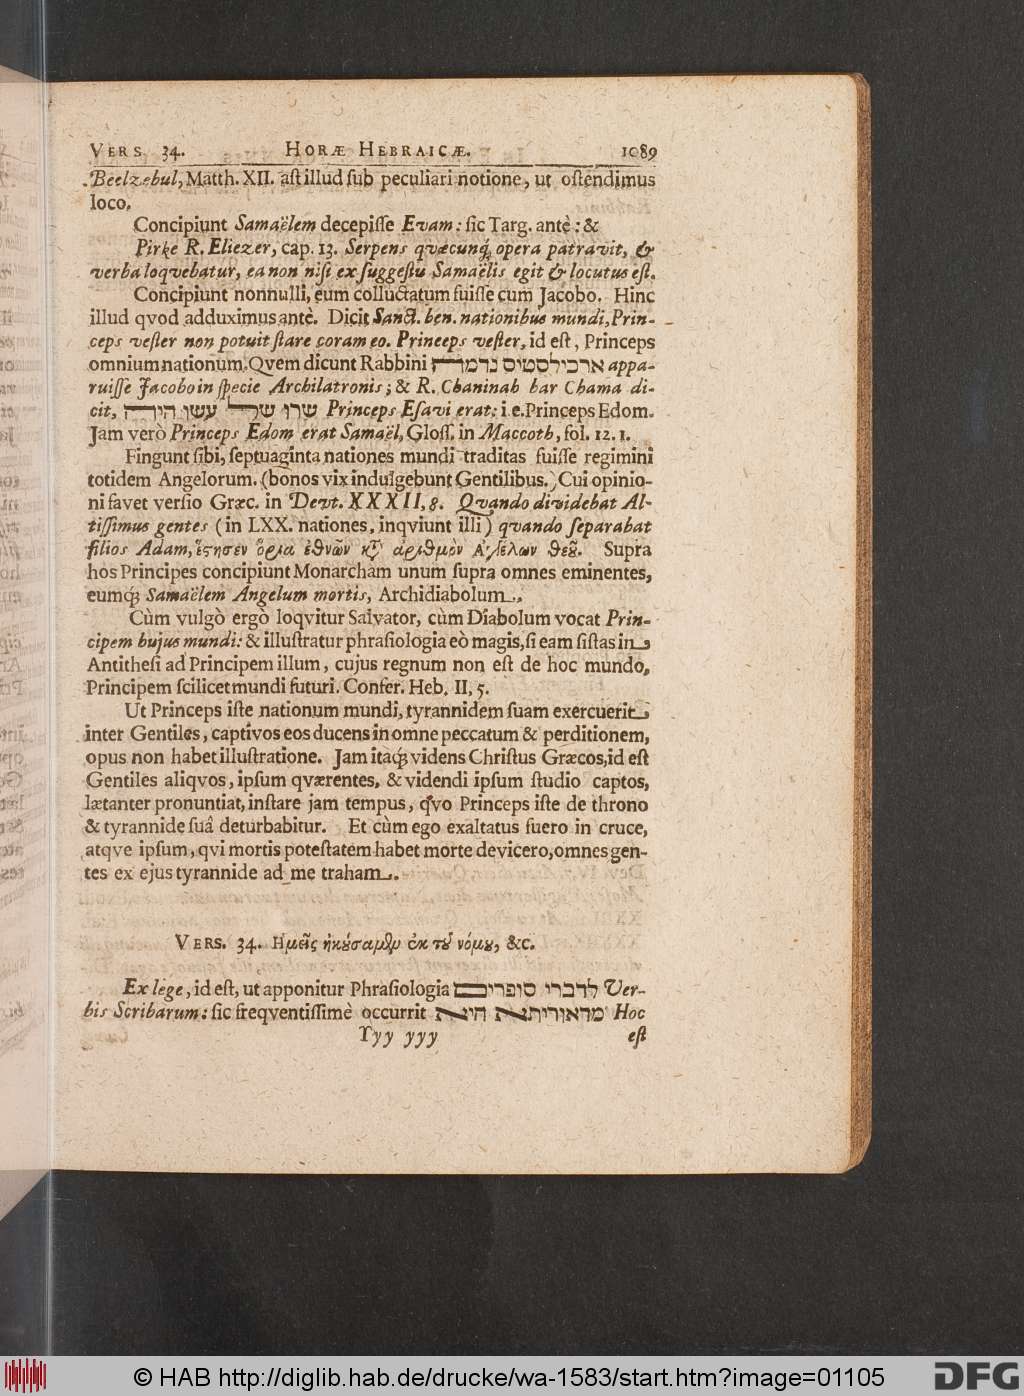 VERS 34. HORÆ HEBRAICÆ. 1089
Beelzebul, Matth. XII. aſt illud ſub peculiari notione, ut oſtendimus
loco.
Concipiunt Samaëlem decepiſſe Evam: ſic Targ. antè: &
Pirke R. Eliezer, cap. 13. Serpens qvæcunq; opera patravit, &
verba loqvebatur, ea non niſi ex ſuggeſtu Samaëlis egit & locutus eſt.
Concipiunt nonnulli, eum colluctatum fuiſſe cum Jacobo. Hinc
illud qvod adduximus antè. Dicit Sanct. ben. nationibus mundi, Prin-
ceps veſter non potuit ſtare coram eo. Princeps veſter, id eſt, Princeps
omnium nationum. Qvem dicunt Rabbini ארכילסטיס נדמה appa-
ruiſſe Jacobo in ſpecie Archilatronis; & R. Chaninah bar Chama di-
cit, שרו של עשו היה Princeps Eſavi erat: i.e. Princeps Edom.
Jam verò Princeps Edom erat Samaël, Gloſſ. in Maccoth, fol. 12. 1.
Fingunt ſibi, ſeptuaginta nationes mundi traditas fuiſſe regimini
totidem Angelorum. (bonos vix indulgebunt Gentilibus.) Cui opinio-
ni favet verſio Græc. in Devt. XXXII, 8. Qvando dividebat Al-
tiſſimus gentes (in LXX. nationes, inqviunt illi) qvando ſeparabat
filios Adam, ἔςησεν ὅρια ἐθνῶν κτ̃ ἀριθμὸν Ἀγγέλων θεȣ͂. Supra
hos Principes concipiunt Monarcham unum ſupra omnes eminentes,
eumq; Samaëlem Angelum mortis, Archidiabolum.
Cùm vulgò ergò loqvitur Salvator, cùm Diabolum vocat Prin-
cipem hujus mundi: & illuſtratur phraſiologia eò magis, ſi eam ſiſtas in
Antitheſi ad Principem illum, cujus regnum non eſt de hoc mundo,
Principem ſcilicet mundi futuri. Confer. Heb. II, 5.
Ut Princeps iſte nationum mundi, tyrannidem ſuam exercuerit
inter Gentiles, captivos eos ducens in omne peccatum & perditionem,
opus non habet illuſtratione. Jam itaq; videns Chriſtus Græcos, id eſt
Gentiles aliqvos, ipſum qværentes, & videndi ipſum ſtudio captos,
lætanter pronuntiat, inſtare jam tempus, qvo Princeps iſte de throno
& tyrannide ſuâ deturbabitur. Et cùm ego exaltatus fuero in cruce,
atqve ipſum, qvi mortis poteſtatem habet morte devicero, omnes gen-
tes ex ejus tyrannide ad me traham.
VERS. 34. Ημεῖς ἠκȣ́σαμεν ἐκ τȣ͂ νόμȣ, &c.
Ex lege, id eſt, ut apponitur Phraſiologia לדברי סופרים Ver-
bis Scribarum: ſic freqventiſſimè occurrit מדאוריתא הינא Hoc
Yyy yyy eſt
© HAB http://diglib.hab.de/drucke/wa-1583/start.htm?image=01105 DFG